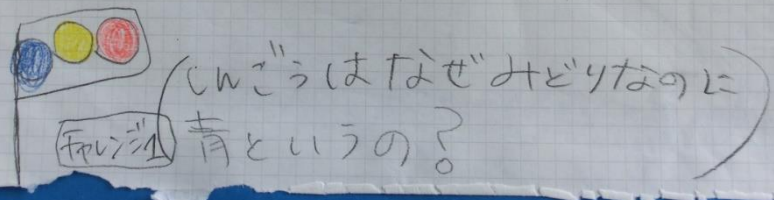 しんごうはなぜみどりなのに
チャレンジ1
青というの?